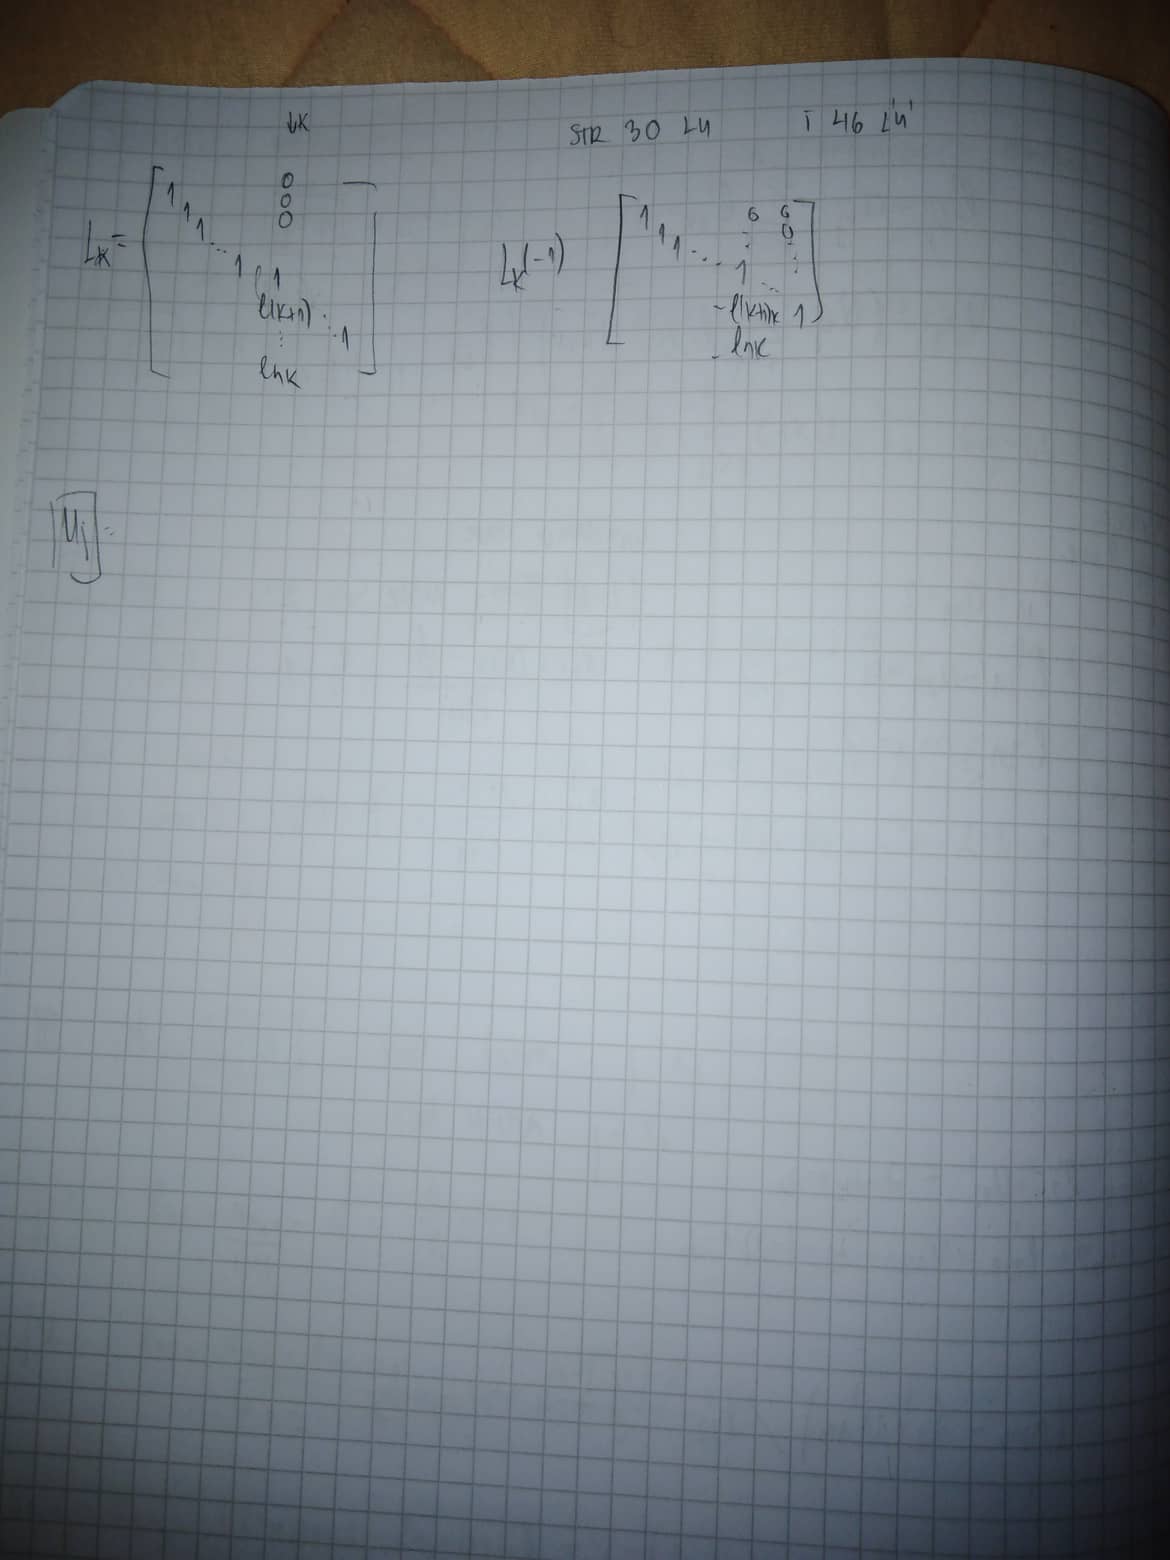 ↓K
STR 30 LU
I 46 L'U'
Lk=
1 0
1 0
1 0
...
1 1
l(k+1) ...
⋮ 1
lnk
Lk(-1)
1 0 0
1 0
1 ... ⋮ ⋮
1 ...
-l(k+1)k 1
- lnk